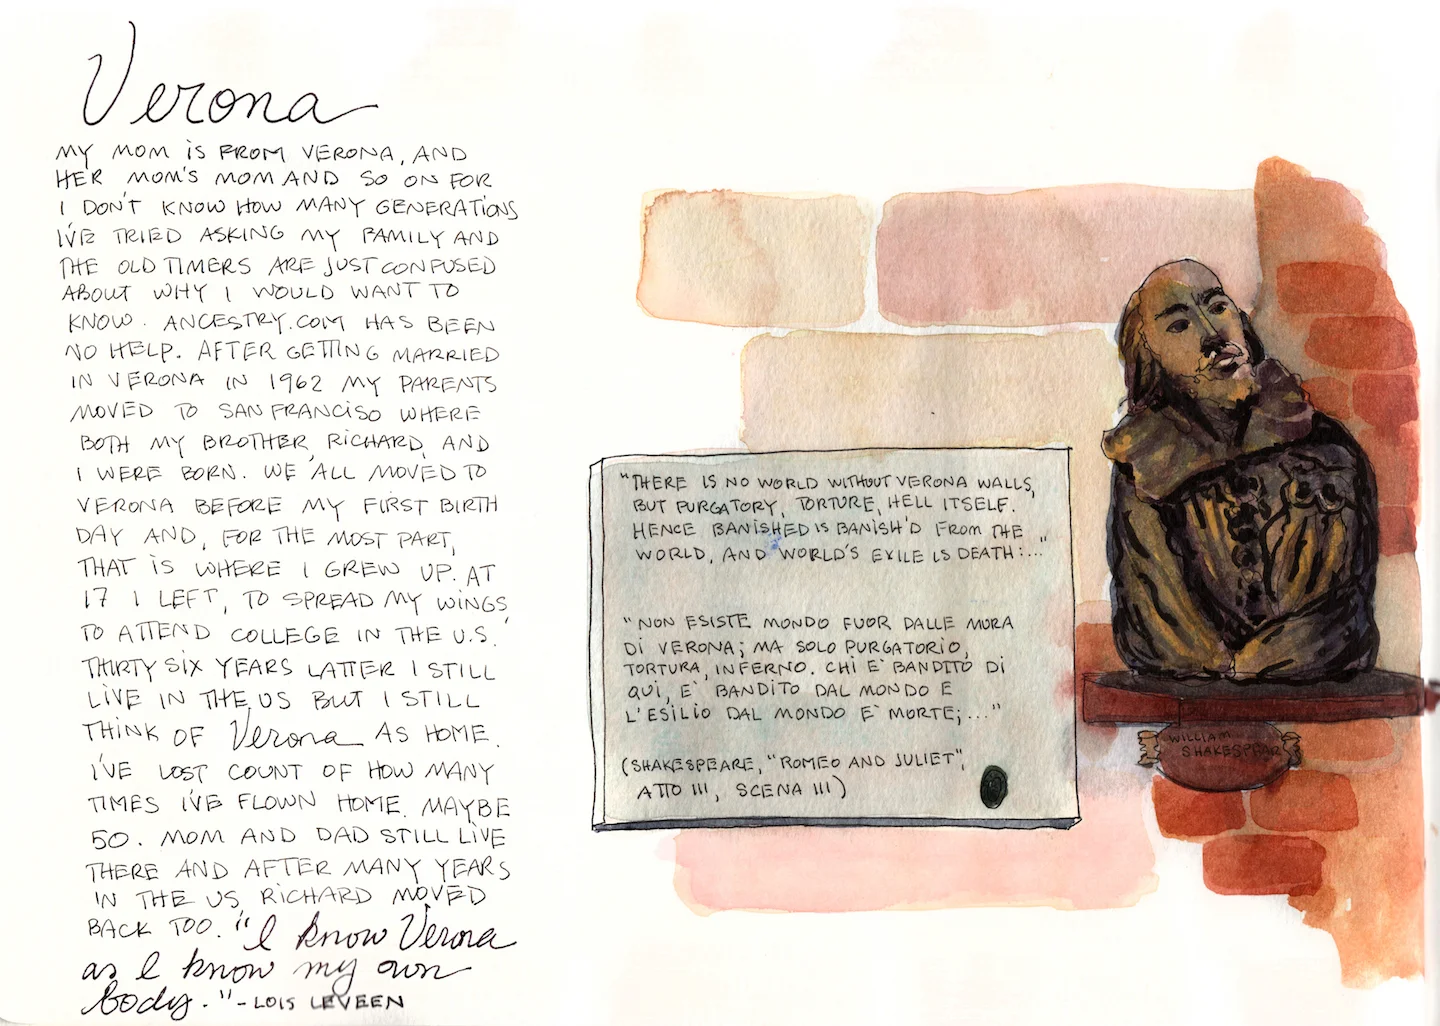 Verona
MY MOM IS FROM VERONA, AND
HER MOM'S MOM AND SO ON FOR
I DON'T KNOW HOW MANY GENERATIONS
I'VE TRIED ASKING MY FAMILY AND
THE OLD TIMERS ARE JUST CONFUSED
ABOUT WHY I WOULD WANT TO
KNOW. ANCESTRY.COM HAS BEEN
NO HELP. AFTER GETTING MARRIED
IN VERONA IN 1962 MY PARENTS
MOVED TO SAN FRANCISO WHERE
BOTH MY BROTHER, RICHARD, AND
I WERE BORN. WE ALL MOVED TO
VERONA BEFORE MY FIRST BIRTH
DAY AND, FOR THE MOST PART,
THAT IS WHERE I GREW UP. AT
17 I LEFT, TO SPREAD MY WINGS,
TO ATTEND COLLEGE IN THE U.S.
THIRTY SIX YEARS LATTER I STILL
LIVE IN THE US BUT I STILL
THINK OF Verona AS HOME.
I'VE LOST COUNT OF HOW MANY
TIMES I'VE FLOWN HOME. MAYBE
50. MOM AND DAD STILL LIVE
THERE AND AFTER MANY YEARS
IN THE US RICHARD MOVED
BACK TOO. "I know Verona
as I know my own
body." - LOIS LEVEEN
"THERE IS NO WORLD WITHOUT VERONA WALLS,
BUT PURGATORY, TORTURE, HELL ITSELF.
HENCE BANISHED IS BANISH'D FROM THE
WORLD, AND WORLD'S EXILE IS DEATH:..."
"NON ESISTE MONDO FUOR DALLE MURA
DI VERONA; MA SOLO PURGATORIO,
TORTURA, INFERNO. CHI E' BANDITO DI
QUI, E' BANDITO DAL MONDO E
L'ESILIO DAL MONDO E' MORTE;..."
(SHAKESPEARE, "ROMEO AND JULIET",
ATTO III, SCENA III)
WILLIAM
SHAKESPEAR